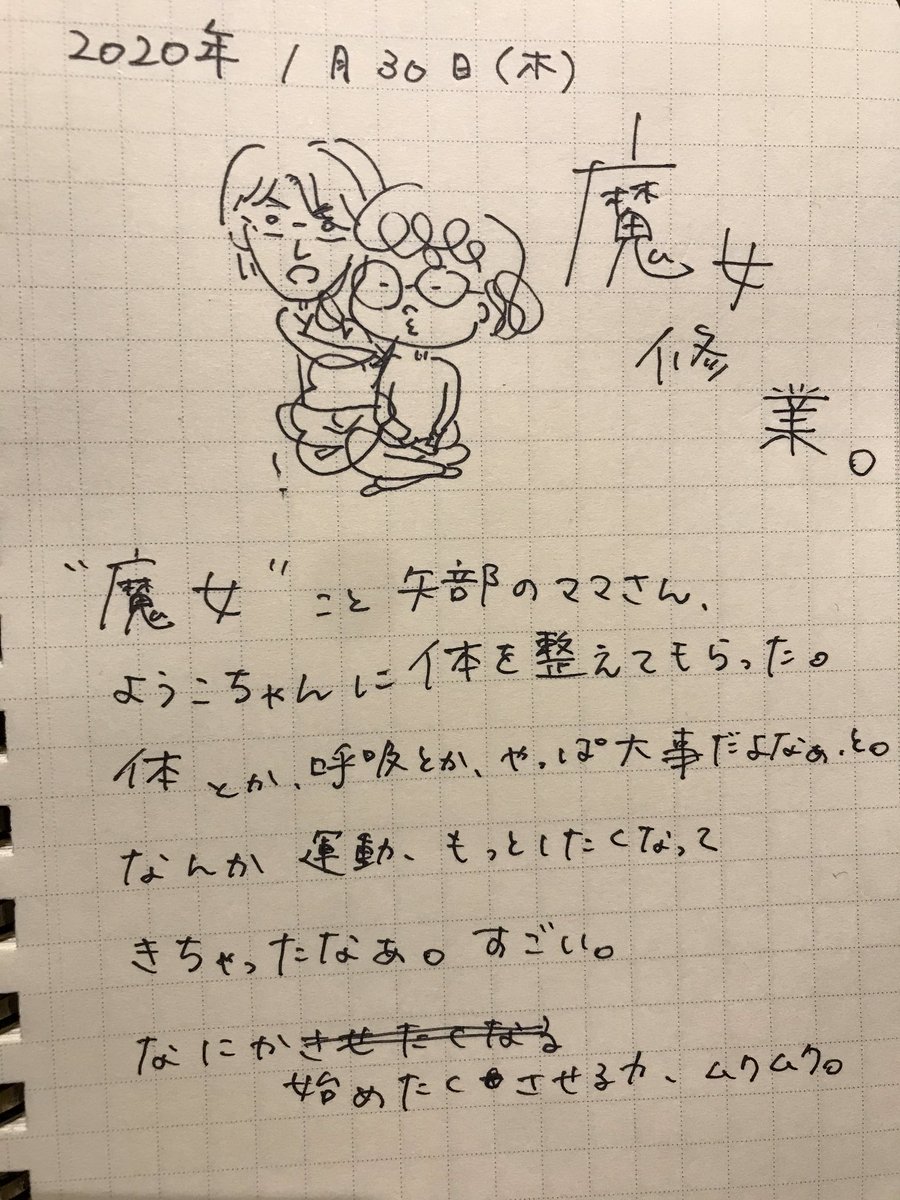 2020年 1月30日(木)
魔女
修
業。
"魔女" こと 矢部のママさん、
ようこちゃんに 体を整えてもらった。
体とか、呼吸とか、やっぱ大事だよなぁ、と。
なんか 運動、もっとしたくなって
きちゃったなぁ。すごい。
なにかさせたくなる
始めたくさせる力、ムクムク。